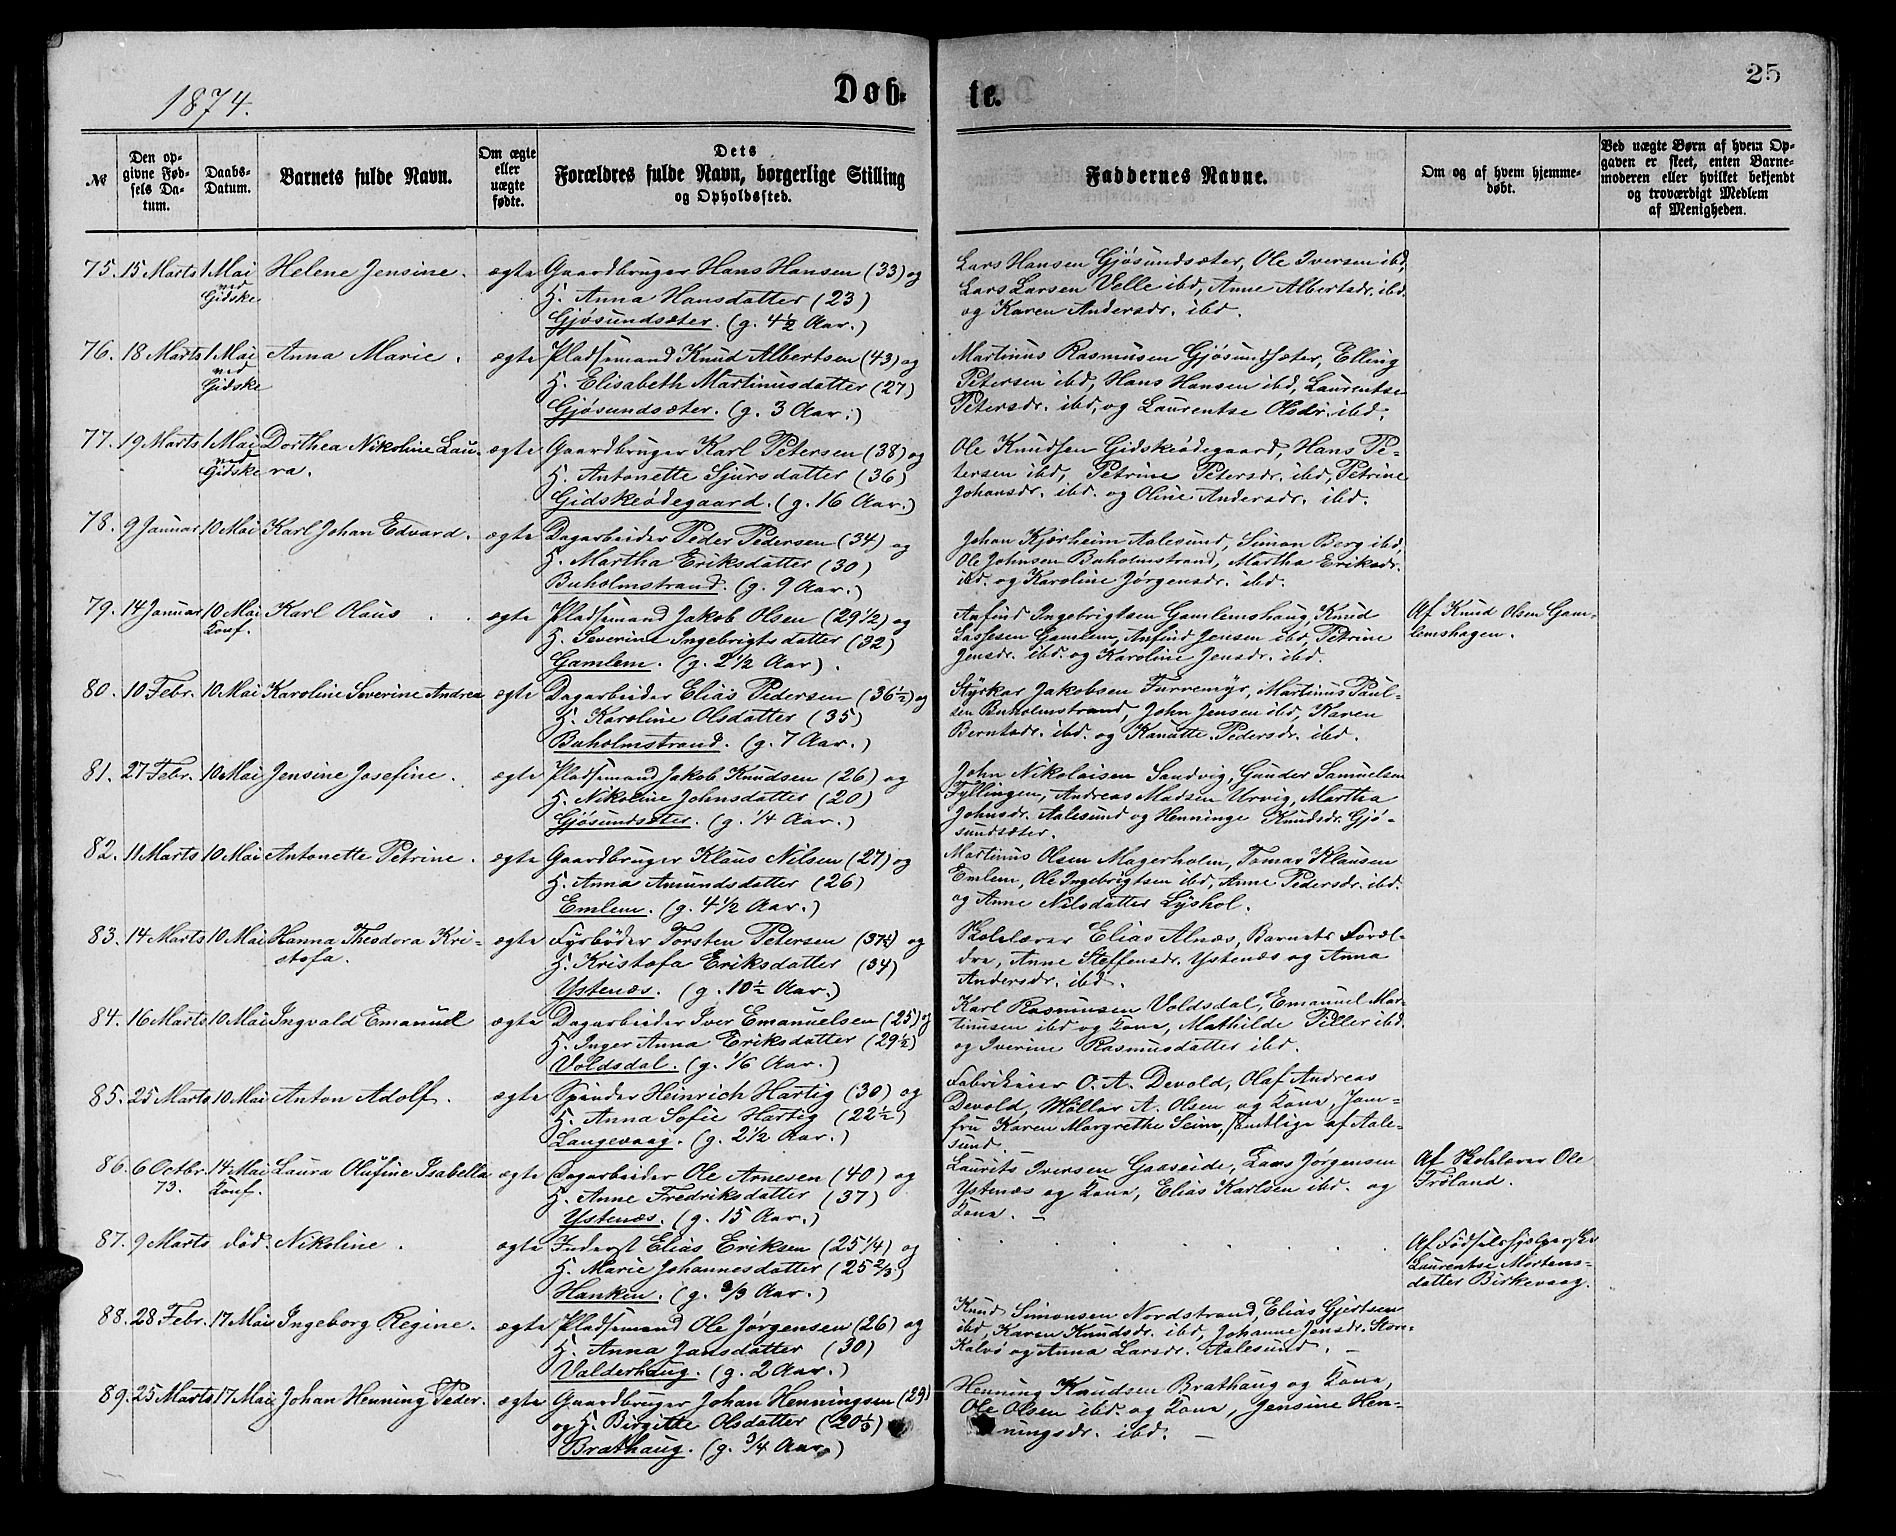 1874.
Døb-
te.
25
№
Den op-
givne Fød-
sels Da-
tum.
Daabs-
Datum.
Barnets fulde Navn.
Om ægte
eller
uægte
fødte.
Dets
Forældres fulde Navn, borgerlige Stilling
og Opholdssted.
Faddernes Navne.
Om og af hvem hjemme-
døbt.
Ved uægte Børn af hvem Op-
gaven er skeet, enten Barne-
moderen eller hvilket bekjendt
og troværdigt Medlem
af Menigheden.
75. 15 Marts 1 Mai Helene Jensine. ægte Gaardbruger Hans Hansen (33) og
ved
Gidske
H. Anna Hansdatter (23)
Gjøsundsæter. (g. 4½ Aar.)
Lars Hansen Gjøsundsæter, Ole Iversen ibd,
Lars Larsen Velle ibd, Anne Albertsdr. ibd.
og Karen Andersdr. ibd.
76. 18 Marts 1 Mai Anna Marie. ægte Pladsemand Knud Albertsen (43) og
ved
Gidske
H. Elisabeth Martinusdatter (27)
Gjøsundsæter. (g. 3 Aar.)
Martinus Rasmusen Gjøsundsæter, Elling
Petersen ibd, Hans Hansen ibd, Laurentse
Petersdr. ibd, og Laurentse Olsdr. ibd.
77. 19 Marts 1 Mai Dorthea Nikoline Lau- ægte Gaardbruger Karl Petersen (38) og
ved
Gidske ra.
H. Antonette Sjursdatter (36)
Gidskeødegaard. (g. 16 Aar.)
Ole Knudsen Gidskeødegaard, Hans Pe-
tersen ibd, Petrine Petersdr. ibd, Petrine
Johansdr. ibd. og Oline Andersdr. ibd.
78. 9 Januar 10 Mai Karl Johan Edvard. ægte Dagarbeider Peder Pedersen (34) og
H. Martha Eriksdatter (30)
Buholmstrand. (g. 9 Aar.)
Johan Kjærheim Aalesund, Simon Berg ibd,
Ole Johnsen Buholmstrand, Martha Eriksdr.
ibd. og Karoline Jørgensdr. ibd.
79. 14 Januar 10 Mai Karl Olaus . . ægte Pladsemand Jakob Olsen (29½) og
Konf.
H. Severine Ingebrigtsdatter (32)
Gamlem. (g. 2½ Aar).
Anfind Ingebrigtsen Gamlemshaug, Knud
Lassesen Gamlem, Anfind Jensen ibd, Petrine
Jensdr. ibd. og Karoline Jensdr. ibd.
Af Knud Olsen Gam-
lemshagen.
80. 10 Febr. 10 Mai Karoline Severine Andrea ægte Dagarbeider Elias Pedersen (36½) og
H. Karoline Olsdatter (35)
Buholmstrand. (g. 7 Aar.)
Styrkar Jakobsen Furremyr, Martinus Paul-
sen Buholmstrand, John Jensen ibd, Karen
Berntsdr. ibd. og Kanutte Pedersdr. ibd.
81. 27 Febr. 10 Mai Jensine Josefine. ægte Pladsemand Jakob Knudsen (26) og
H. Nikoline Johnsdatter (20)
Gjøsundsæter. (g. ¼ Aar.)
John Nikolaisen Sandvig, Gunder Samuelsen
Fyllingen, Andreas Madsen Urvig, Martha
Johnsdr. Aalesund og Henninge Knudsdr. Gjø-
sundsæter.
82. 11 Marts 10 Mai Antonette Petrine. ægte Gaardbruger Klaus Nilsen (27) og
H. Anna Amundsdatter (26)
Emlem. (g. 4½ Aar.)
Martinus Olsen Magerholm, Tomas Klausen
Emlem, Ole Ingebrigtsen ibd, Anne Pedersdr. ibd.
og Anne Nilsdatter Lyshol.
83. 14 Marts 10 Mai Hanna Theodora Kri- ægte Fyrbøder Torsten Petersen (37¼) og
stofa.
H. Kristofa Eriksdatter (34)
Ystenæs. (g. 10½ Aar.)
Skolelærer Elias Alnæs, Barnets Foræl-
dre, Anne Steffensdr. Ystenæs og Anna
Andersdr. ibd.
84. 16 Marts 10 Mai Ingvald Emanuel ægte Dagarbeider Iver Emanuelsen (25) og
H. Inger Anna Eriksdatter (29½)
Voldsdal. (g. 1/6 Aar.)
Karl Rasmusen Voldsdal, Emanuel Mar-
tinusen ibd og Kone, Mathilde Piller ibd.
og Iverine Rasmusdatter ibd.
85. 25 Marts 10 Mai Anton Adolf. ægte Spinder Heinrich Hartig (30) og
H. Anna Sofie Hartig (22½)
Langevaag. (g. 2½ Aar.)
Fabrikeier O. A. Devold, Olaf Andreas
Devold, Møller A. Olsen og Kone, Jom-
fru Karen Margrethe Seim, samtlige af Aale-
sund.
86. 6 Octbr. 14 Mai Laura Olufine Isabella ægte Dagarbeider Ole Arnesen (40) og
73. Konf.
H. Anne Fredriksdatter (37)
Ystenæs. (g. 15 Aar.)
Laurits Iversen Gaaseide, Lars Jørgensen
Ystenæs og Kone, Elias Karlsen ibd. og
Kone. —
Af Skolelærer Ole
Frøland.
87. 9 Marts død. Nikoline. ægte Inderst Elias Eriksen (25¼) og
H. Marie Johannesdatter (25 2/3)
Hanken. (g. 2/3 Aar.)
Af Fødselshjelperske
Laurentse Mortens-
datter Birkevaag.
88. 28 Febr. 17 Mai Ingeborg Regine. ægte Pladsemand Ole Jørgensen (26) og
H. Anna Jansdatter (30)
Valderhaug. (g. 2 Aar.)
Knud Simonsen Nordstrand, Elias Gjertsen
ibd, Karen Knudsdr. ibd, Johanne Jensdr. Store-
Kalvø og Anna Larsdr. Aalesund. —
89. 25 Marts 17 Mai Johan Henning Peder. ægte Gaardbruger Johan Henningsen (29)
og H. Birgitte Olsdatter (20⅓)
Brathaug. (g. ¾ Aar.)
Henning Knudsen Brathaug og Kone,
Ole Olsen ibd. og Kone, Jensine Hen-
ningsdr. ibd. —